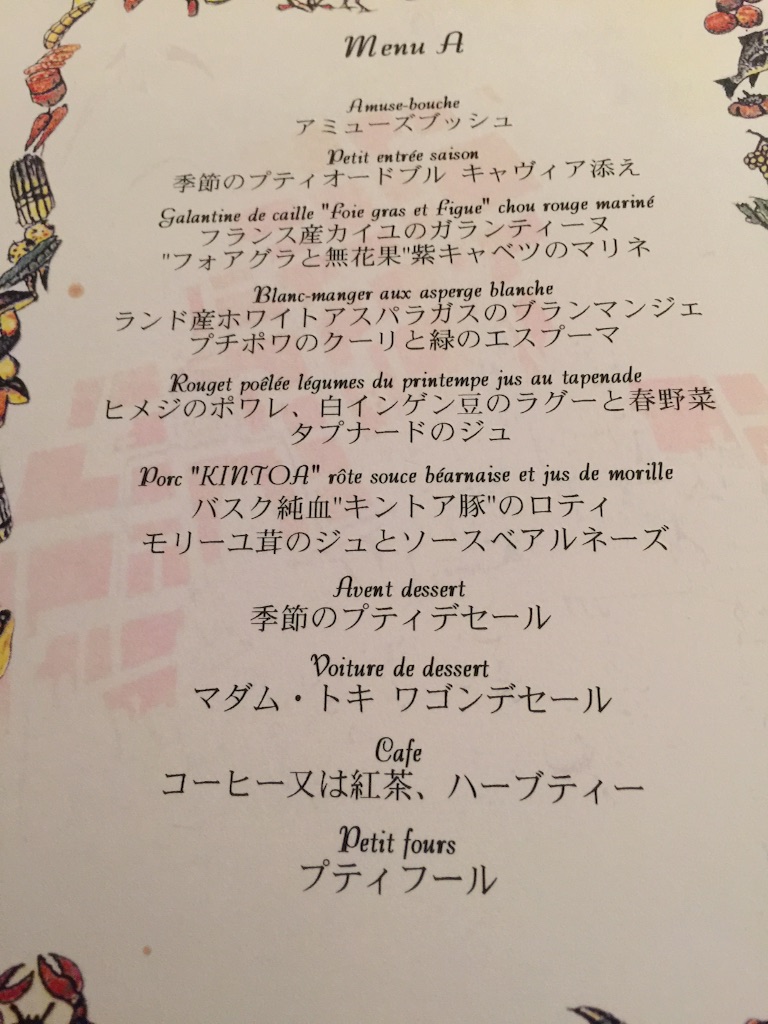 Menu A
Amuse-bouche
アミューズブッシュ
Petit entrée saison
季節のプティオードブル キャヴィア添え
Galantine de caille "foie gras et figue" chou rouge mariné
フランス産カイユのガランティーヌ
"フォアグラと無花果"紫キャベツのマリネ
Blanc-manger aux asperge blanche
ランド産ホワイトアスパラガスのブランマンジェ
プチポワのクーリと緑のエスプーマ
Rouget poêlée légumes du printempe jus au tapenade
ヒメジのポワレ、白インゲン豆のラグーと春野菜
タプナードのジュ
Porc "KINTOA" rôte souce béarnaise et jus de morille
バスク純血"キントア豚"のロティ
モリーユ茸のジュとソースベアルネーズ
Avent dessert
季節のプティデセール
Voiture de dessert
マダム・トキ ワゴンデセール
Cafe
コーヒー又は紅茶、ハーブティー
Petit fours
プティフール